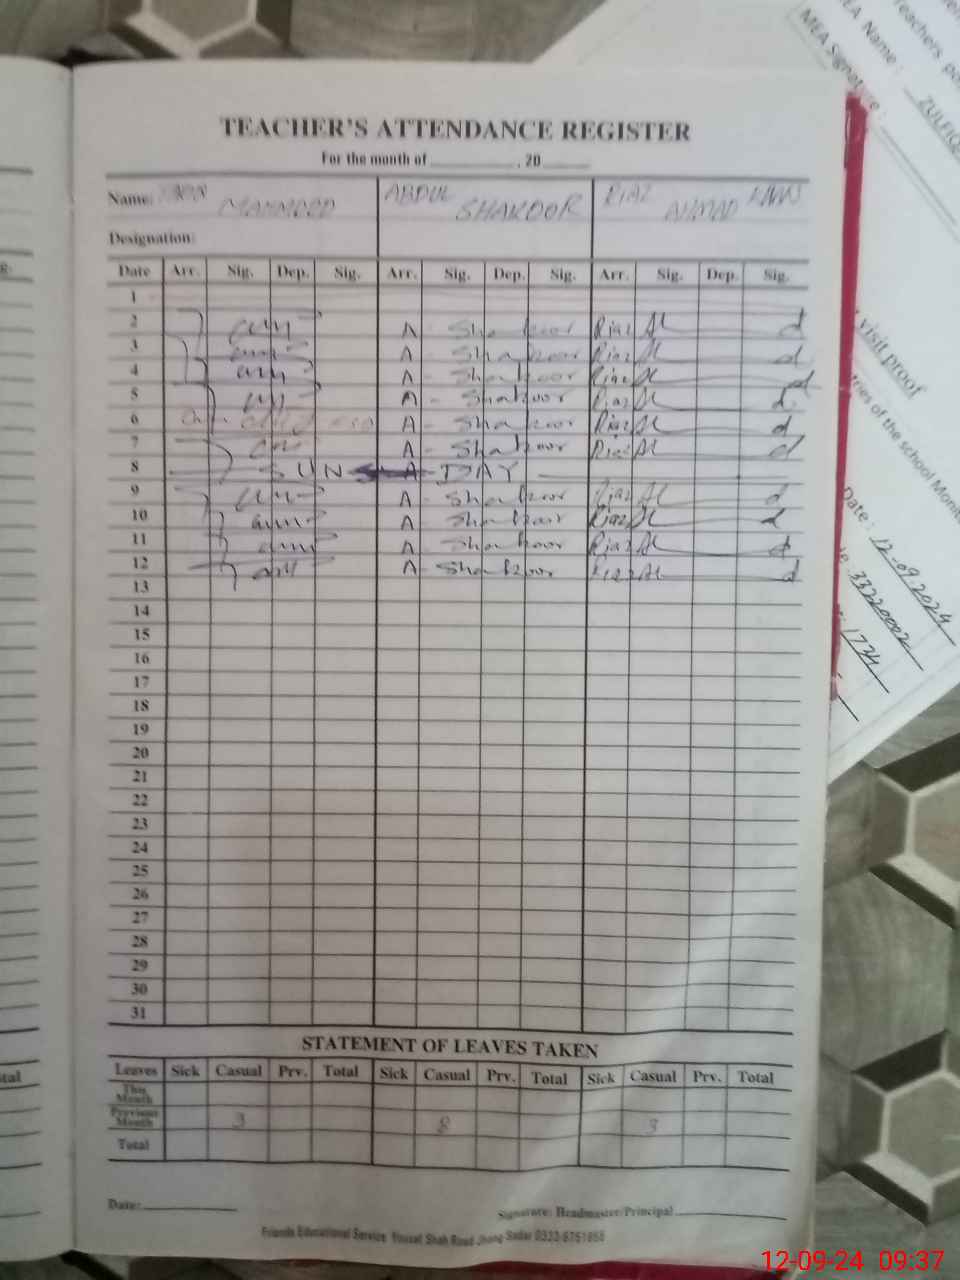 TEACHER'S ATTENDANCE REGISTER
For the month of ________, 20____
Name: MAHMOOD ABDUL SHAKOOR RIAZ AHMAD
Designation:
Date Arr. Sig. Dep. Sig. Arr. Sig. Dep. Sig. Arr. Sig. Dep. Sig.
1
2 A Shakoor Riaz
3 A Shakoor Riaz
4 A Shakoor Riaz
5 A Shakoor Riaz
6 A Shakoor Riaz
7 A Shakoor Riaz
8 SUN DAY
9 A Shakoor Riaz
10 A Shakoor Riaz
11 A Shakoor Riaz
12 A Shakoor Riaz
13
14
15
16
17
18
19
20
21
22
23
24
25
26
27
28
29
30
31
STATEMENT OF LEAVES TAKEN
Leaves Sick Casual Prv. Total Sick Casual Prv. Total Sick Casual Prv. Total
This Month
Previous Month 3 8 9
Total
Date:
Signature: Headmaster/Principal
Friends Educational Service Yousaf Shah Road Jhang Sadar
MEA Name:
MEA Signature:
Teachers
visit proof
of the school
Date: 12-09-2024
33220002
1734
12-09-24 09:37